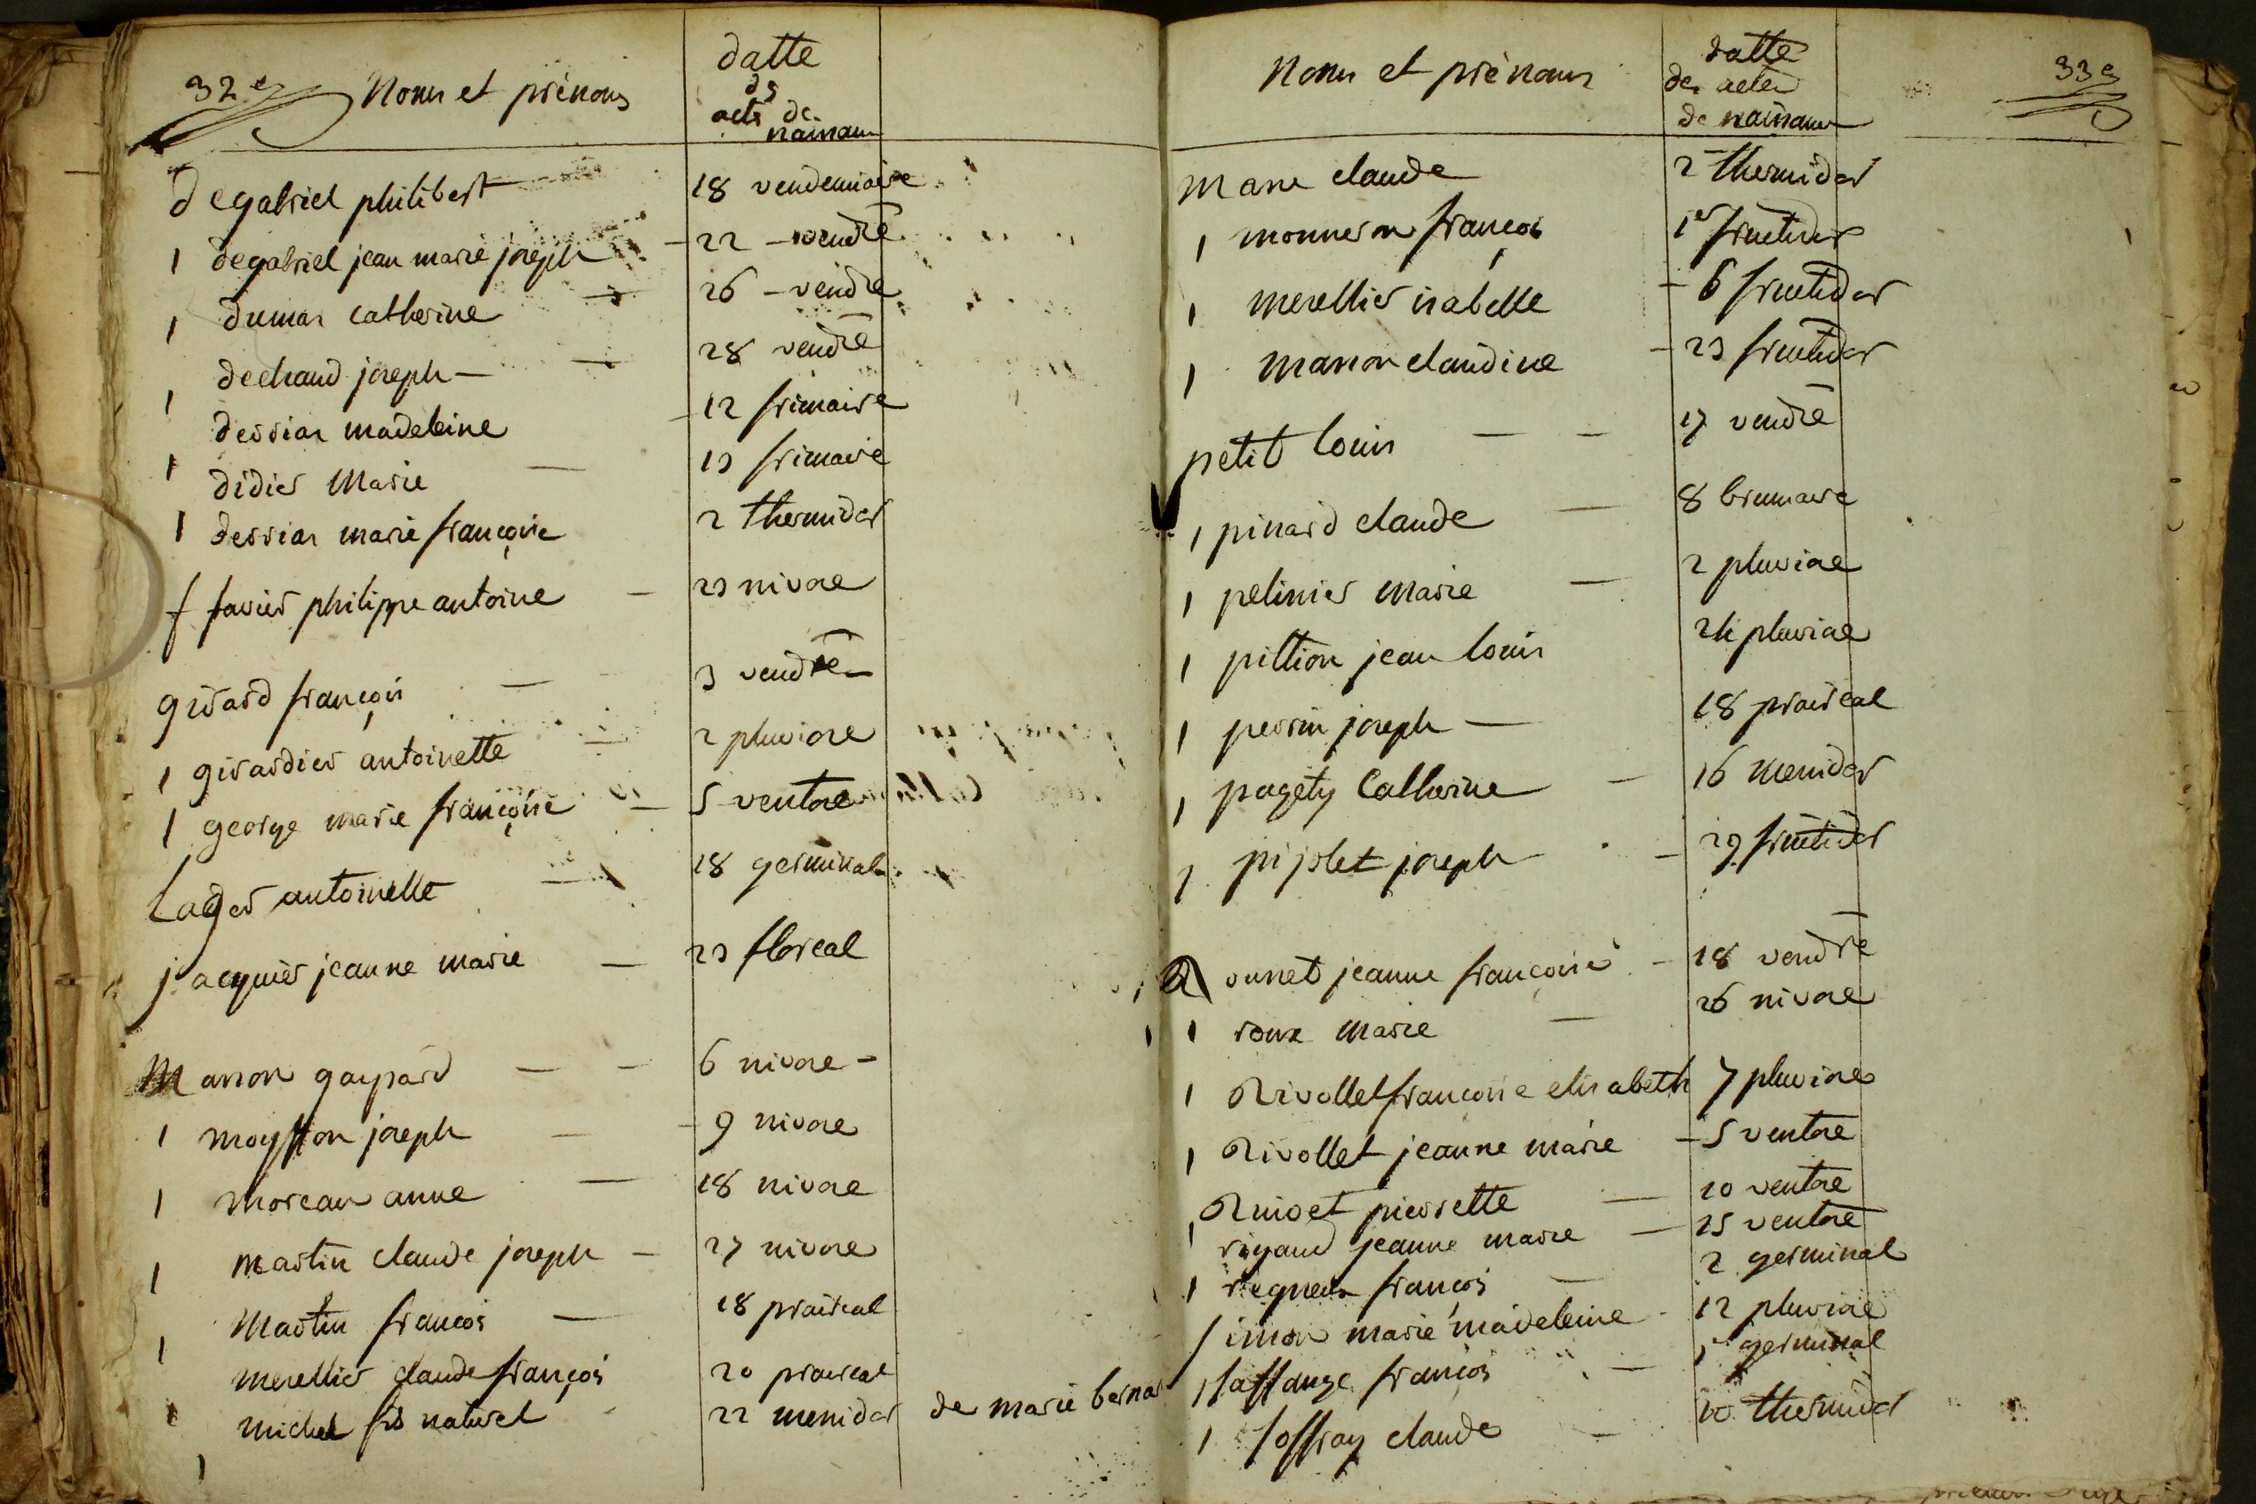 32e
Noms et prénoms
datte
ds
acts de
naissan
degabriel philibert
18 vendemiaire
1 degabriel jean marie joseph
22 vendre
1 dumas catherine
26 vendre
1 dechaud joseph
28 vendre
1 derrias madeleine
12 frimaire
1 didier Marie
13 frimaire
1 derrias marie françoise
2 thermidor
f favier philippe antoine
23 nivose
girard françois
3 vendre
1 girardier antoinette
2 pluviose
1 george marie françoise
5 ventose
Lager antoinette
18 germinal
jacquier jeanne marie
23 floreal
Masson gaspard
6 nivose
1 moysson joseph
9 nivose
1 moreau anne
18 nivose
1 martin claude joseph
27 nivose
1 Martin francois
18 praireal
1 merellier claude françois
20 praireal
1 michel fils naturel
22 messidor de marie bernar
Noms et prénoms
datte
des actes
de naissance
33e
Mare claude
2 thermidor
1 monneron françois
1er fructidor
1 merellier isabelle
6 fructidor
1 masson claudine
23 fructidor
petit louis
17 vendre
1 pinard claude
8 brumaire
1 pelinier Marie
2 pluviose
1 pittion jean louis
24 pluviose
1 perrin joseph
18 praireal
1 pagety Catherine
16 messidor
1 pijolet joseph
29 fructidor
Rounet jeanne françoise
18 vendre
1 roux Marie
26 nivose
1 Rivollet francoise elisabeth
7 pluviose
1 Rivollet jeanne marie
5 ventose
pierrette
10 ventose
1 rigaud jeanne marie
25 ventose
1 françois
2 germinal
Simon marie madeleine
12 pluviose
1 saffange françois
1er germinal
1 soffray claude
10 thermidor